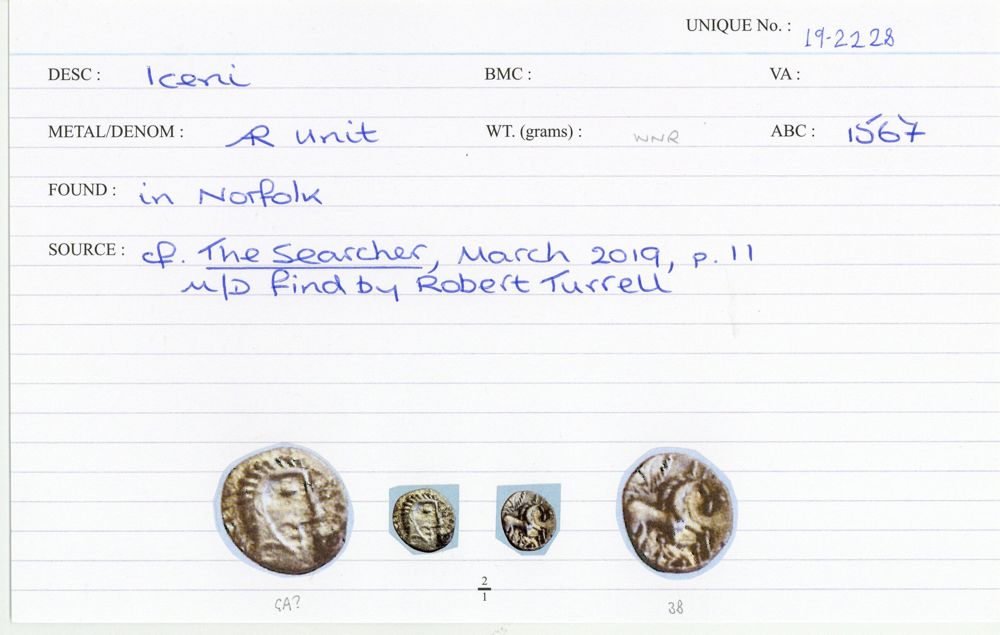 UNIQUE No. : 19-2228
DESC : Iceni BMC : VA :
METAL/DENOM : AR unit WT. (grams) : WNR ABC : 1567
FOUND : in Norfolk
SOURCE : cf. The Searcher, March 2019, p. 11
M/D find by Robert Turrell
2
1
GA? 3B